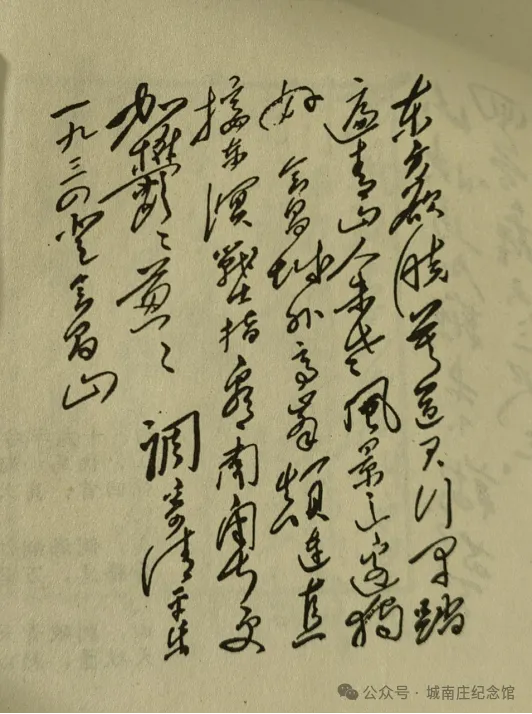 东方欲晓莫道君行早踏
遍青山人未老風景这邊獨
好 会昌城外高峯颠連直
接东溟戰士指看南粤更
加鬱〻葱〻 調寄清平乐
一九三四登会昌山
公众号·城南庄纪念馆